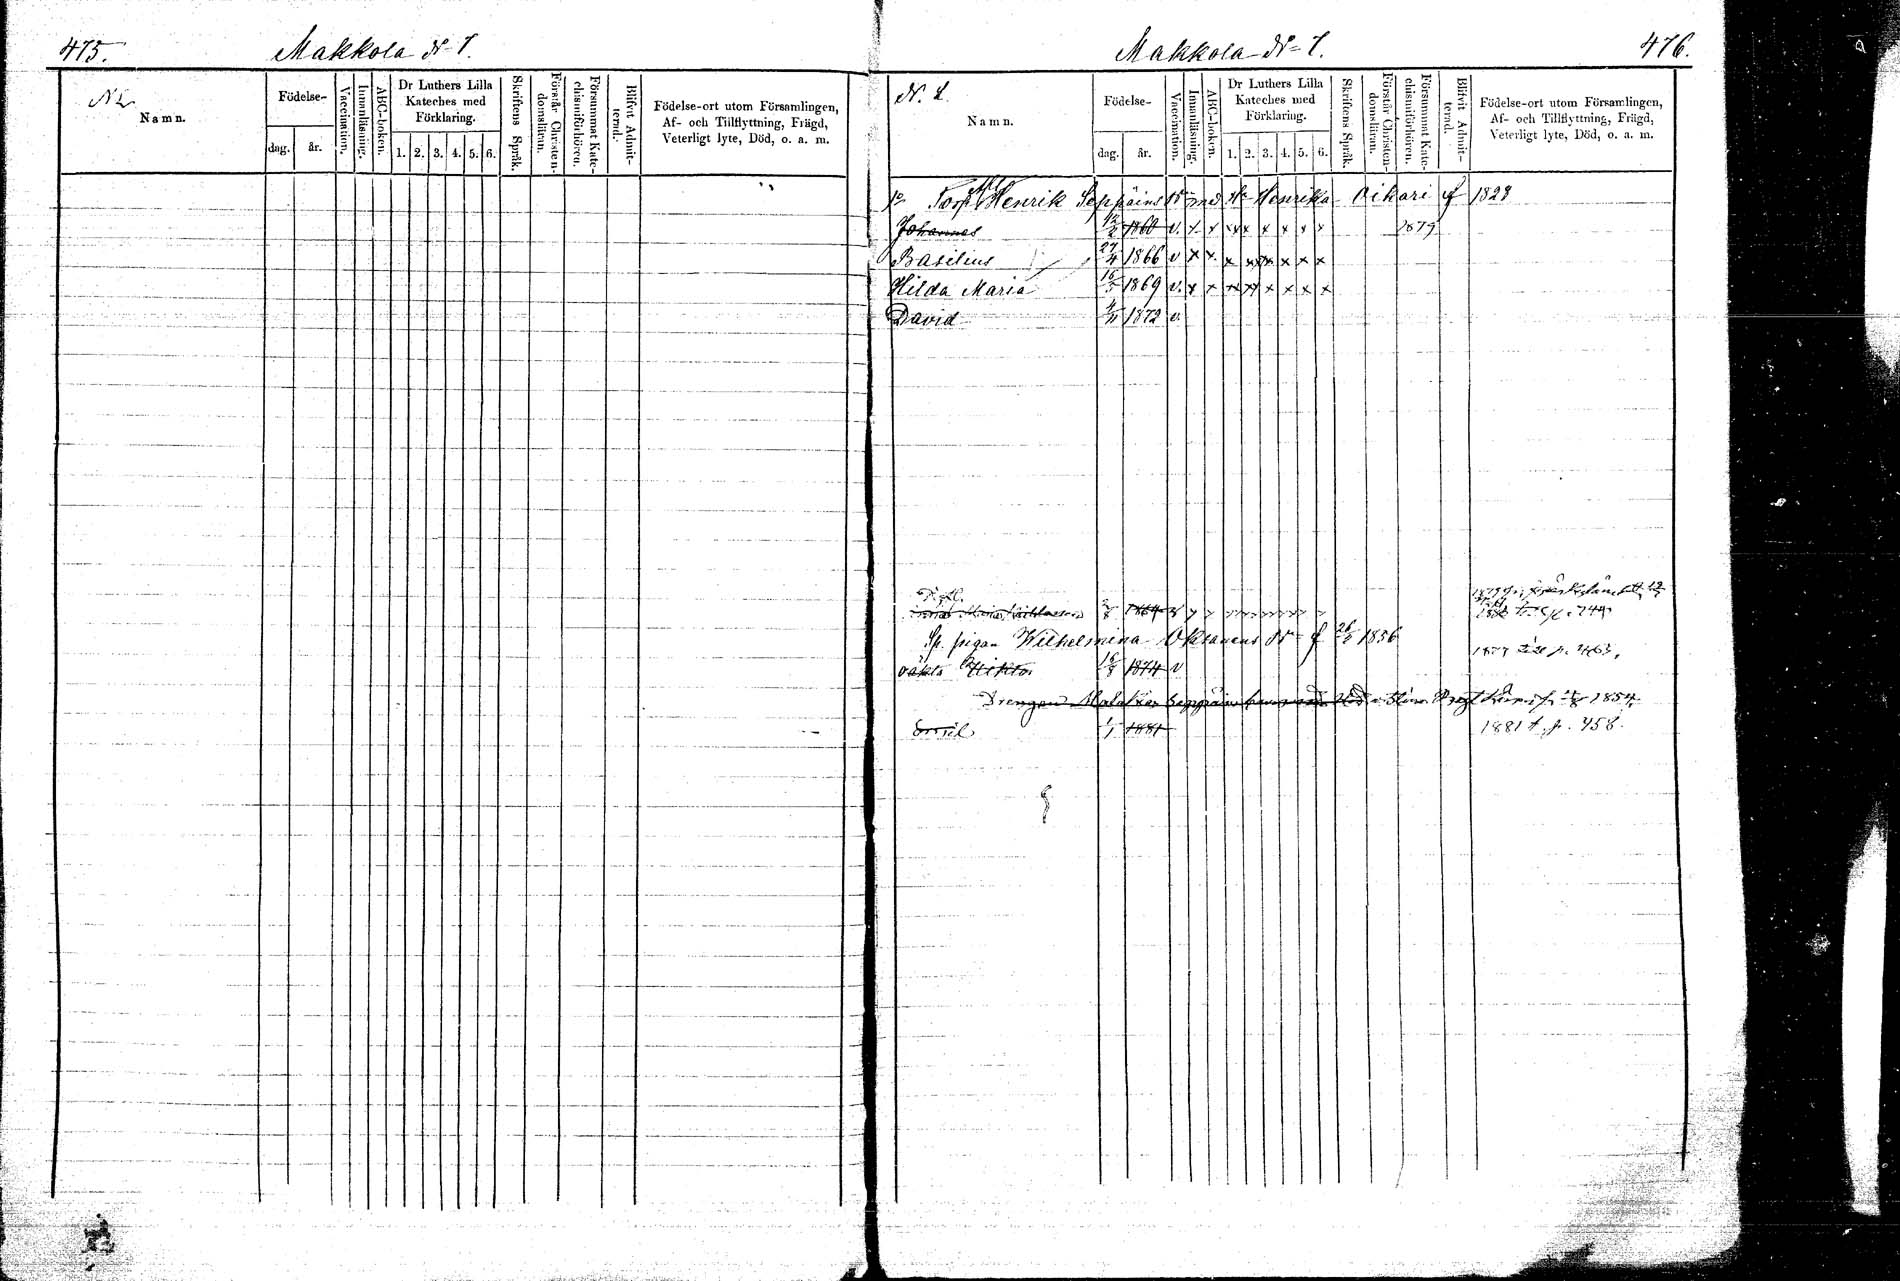 475.
Makkola N 7.
Namn.
Födelse-
dag.
år.
Vaccination.
Innanläsning.
ABC-boken.
Dr Luthers Lilla
Kateches med
Förklaring.
1. 2. 3. 4. 5. 6.
Skriftens Språk.
Förstår Christen-
domsläran.
Försummat Kate-
chismiförhören.
Blifvit Admit-
terad.
Födelse-ort utom Församlingen,
Af- och Tillflyttning, Frägd,
Veterligt lyte, Död, o. a. m.
Makkola N= 7.
476.
N. L.
Namn.
Födelse-
dag.
år.
Vaccination.
Innanläsning.
ABC-boken.
Dr Luthers Lilla
Kateches med
Förklaring.
1. 2. 3. 4. 5. 6.
Skriftens Språk.
Förstår Christen-
domsläran.
Försummat Kate-
chismiförhören.
Blifvit Admit-
terad.
Födelse-ort utom Församlingen,
Af- och Tillflyttning, Frägd,
Veterligt lyte, Död, o. a. m.
Torp Henrik Seppäins med Henrika Oikari f 1828
Johannes 1860 v. x x x x x x x x 1879
Basilius 27/4 1866 v x x x x x x x x
Hilda Maria 16/5 1869 v. x x x x x x x x
David 4/11 1872 v.
1864
Sp. pigan Wilhelmina Oksanens f 26/5 1856
oäkta 16/8 1874 v
1877 p. 463.
Drengen Seppäins 1854
1/1 1881
1881 p. 458.